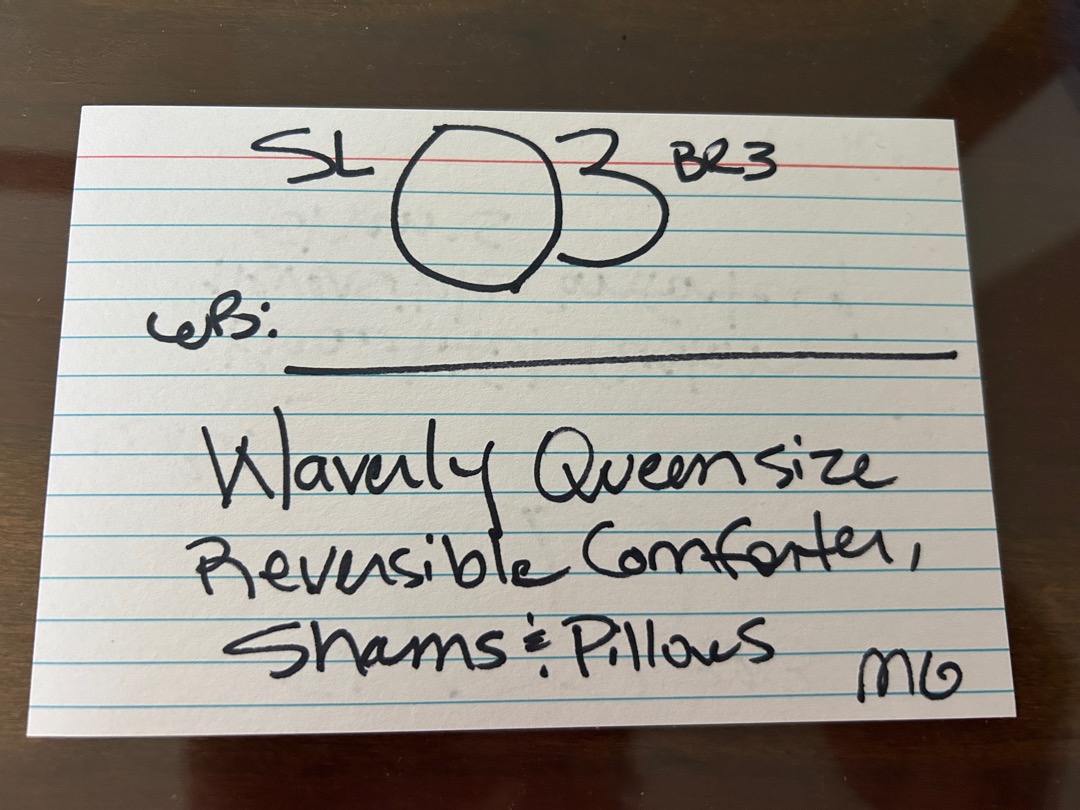 SL 03 BR3
WB:
Waverly Queensize
Reversible Comforter,
Shams & Pillows
MG